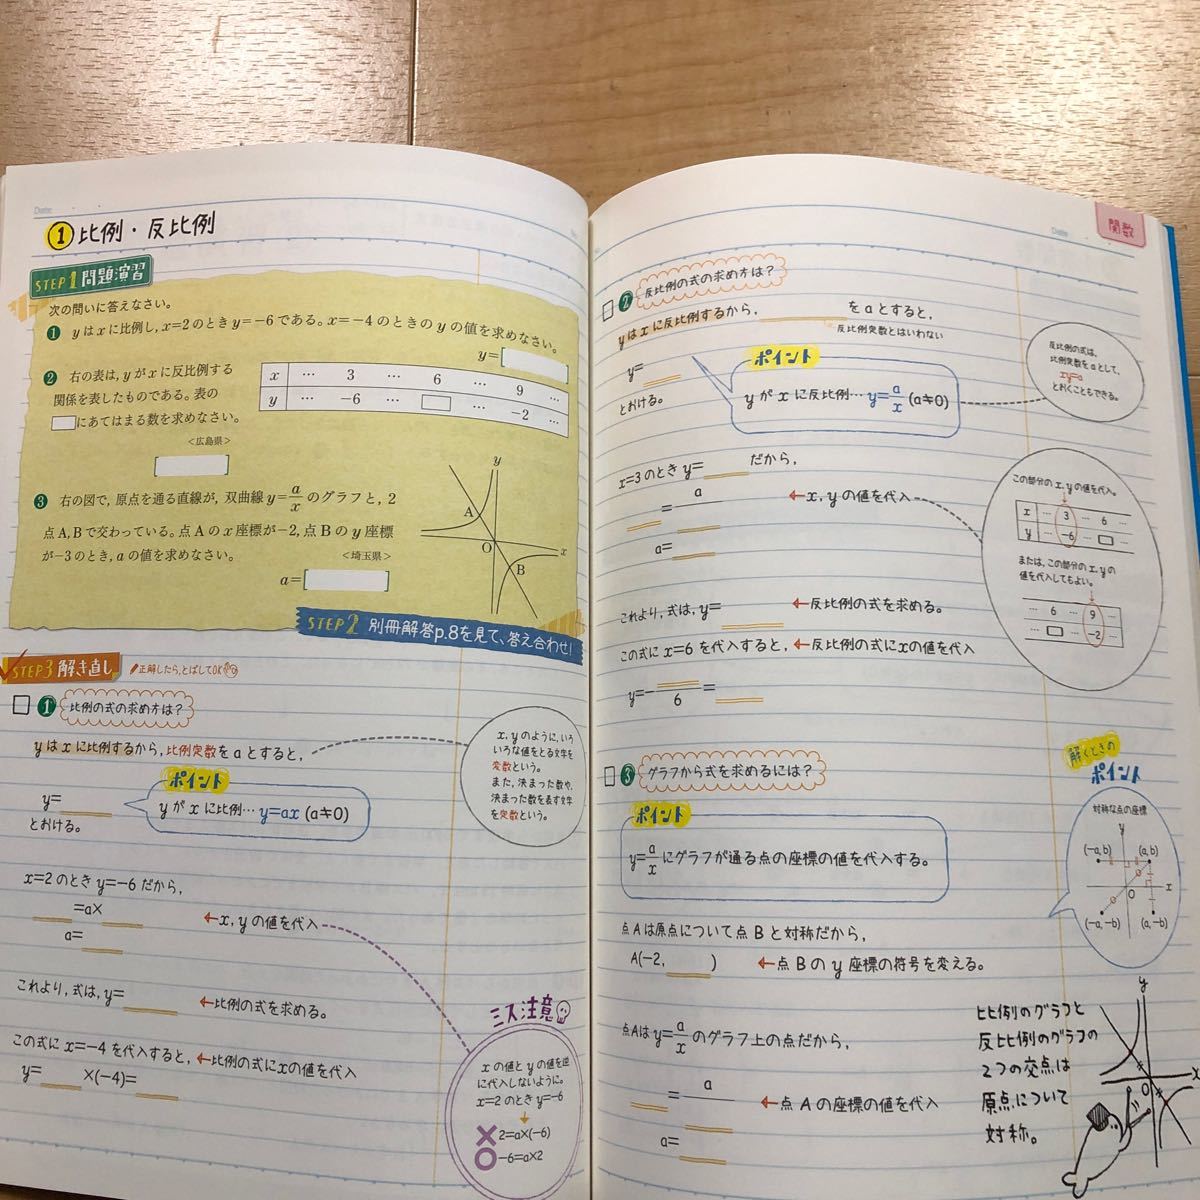 Date
①比例・反比例
STEP1 問題演習
次の問いに答えなさい。
1 yはxに比例し、x=2のときy=-6である。x=-4のときのyの値を求めなさい。
y=
2 右の表は、yがxに反比例する
関係を表したものである。表の
□にあてはまる数を求めなさい。
<広島県>
x … 3 … 6 … 9 …
y … -6 … □ … -2 …
3 右の図で、原点を通る直線が、双曲線y=a/xのグラフと、2
点A、Bで交わっている。点Aのx座標が-2、点Bのy座標
が-3のとき、aの値を求めなさい。
<埼玉県>
a=
y
A
O
x
B
STEP2 別冊解答p.8を見て、答え合わせ!
STEP3 解き直し
正解したら、とばしてOK
1 比例の式の求め方は?
yはxに比例するから、比例定数をaとすると、
ポイント
y=
yがxに比例…y=ax(a≠0)
とおける。
x、yのように、いろ
いろな値をとる文字を
変数という。
また、決まった数や、
決まった数を表す文字
を定数という。
x=2のときy=-6だから、
=a×
←x、yの値を代入
a=
これより、式は、y=
←比例の式を求める。
この式にx=-4を代入すると、←比例の式にxの値を代入
y= ×(-4)=
ミス注意
xの値とyの値を逆
に代入しないように。
x=2のときy=-6
×2=a×(-6)
○-6=a×2
Date
関数
2 反比例の式の求め方は?
yはxに反比例するから、 をaとすると、
反比例定数とはいわない
ポイント
y=
yがxに反比例…y=a/x(a≠0)
とおける。
反比例の式は、
比例定数をaとして、
xy=a
とおくこともできる。
x=3のときy= だから、
=a/
←x、yの値を代入
a=
この部分のx、yの値を代入。
x … 3 … 6 …
y … -6 … □ …
または、この部分のx、yの
値を代入してもよい。
… 6 … 9 …
… □ … -2 …
これより、式は、y=
←反比例の式を求める。
この式にx=6を代入すると、←反比例の式にxの値を代入
y=- /6=
3 グラフから式を求めるには?
ポイント
y=a/xにグラフが通る点の座標の値を代入する。
解くときの
ポイント
対称な点の座標
y
(-a, b) (a, b)
O x
(-a, -b) (a, -b)
点Aは原点について点Bと対称だから、
A(-2, )
←点Bのy座標の符号を変える。
点Aはy=a/xのグラフ上の点だから、
=a/
←点Aの座標の値を代入
a=
比例のグラフと
反比例のグラフの
2つの交点は
原点について
対称。
y
x
O